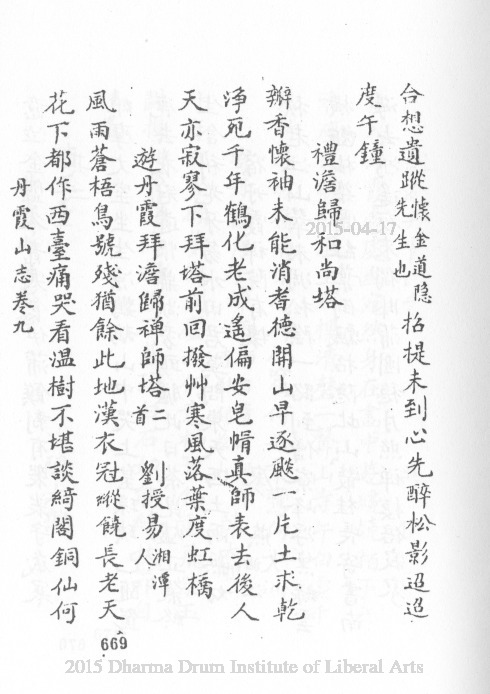 合想遺蹤懷金道隐先生也招提未到心先醉松影迢迢
度午鐘
禮澹歸和尚塔
瓣香懷袖未能消耆德開山早逐飈一片土求乾
淨死千年鶴化老成遙偏安皂帽真師表去後人
天亦寂寥下拜塔前回撥艸寒風落葉度虹橋
遊丹霞拜澹歸禅師塔二首 劉授易湘潭人
風雨蒼梧鳥號殘猶餘此地漢衣冠蹤饒長老天
花下都作西臺痛哭看温樹不堪談閣銅仙何
丹霞山志卷九
669
2015-04-17
2015 Dharma Drum Institute of Liberal Arts